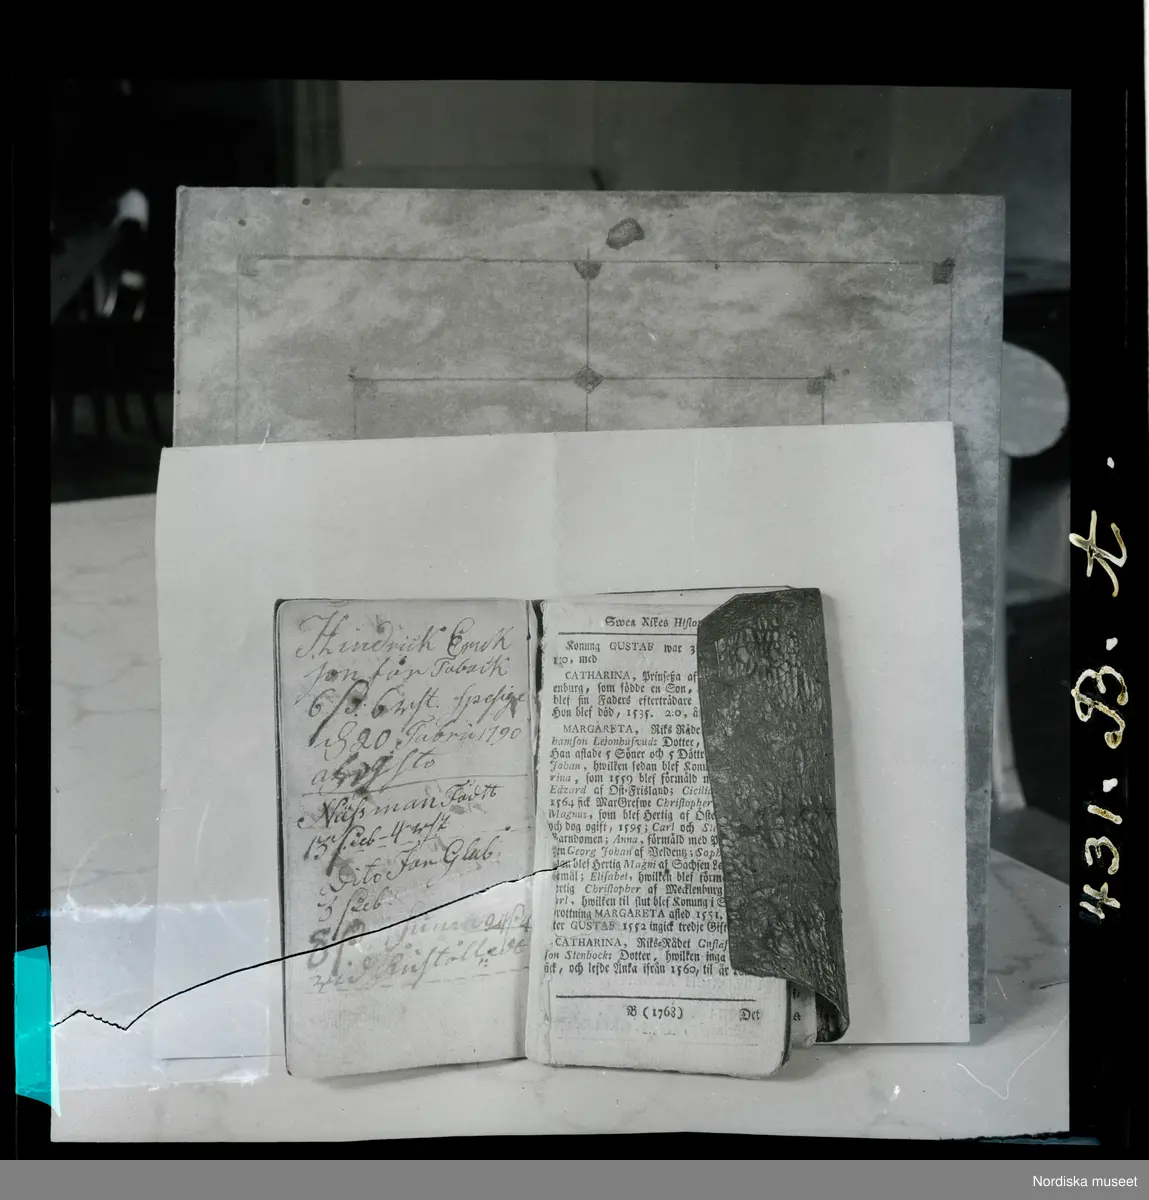 Hindrich
son för Toback
6/S: 6 rst. spesige
d 20 Fabrii 1790
Näsman Födt
13 sieb - 4 rst
Dito För Glas
3 sieb.
Swea Rikes Histor
Konung GUSTAF war 3
1:0, med
CATHARINA, Prinseßa af
enburg, som födde en Son,
blef sin Faders efterträdare
Hon blef död, 1535. 2:0, å
MARGARETA, Riks Råde
hamson Lejonhufvuds Dotter,
Han aflade 5 Söner och 5 Dött
Johan, hwilken sedan blef Konu
rina, som 1559 blef förmäld m
Edzard af Ost-Frisland; Cicilia
1564 fick MarGrefwe Christopher
Magnus, som blef Hertig af Öste
och dog ogift, 1595; Carl och Ste
Barndomen; Anna, förmäld med P
Georg Johan af Veldentz; Soph
blef Hertig Magni af Sachsen La
mål; Elisabet, hwilken blef förm
ertig Christopher af Mecklenburg
arl, hwilken til slut blef Konung i S
rottning MARGARETA afled 1551,
ter GUSTAF 1552 ingick tredje Gift
CATHARINA, Riks-Rådet Gustaf
son Stenbocks Dotter, hwilken inga
ick, och lefde Änka ifrån 1560, til år
B (1768) Det
431. B. t.
Nordiska museet